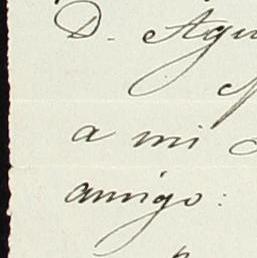 D. Agu
a mi
amigo: